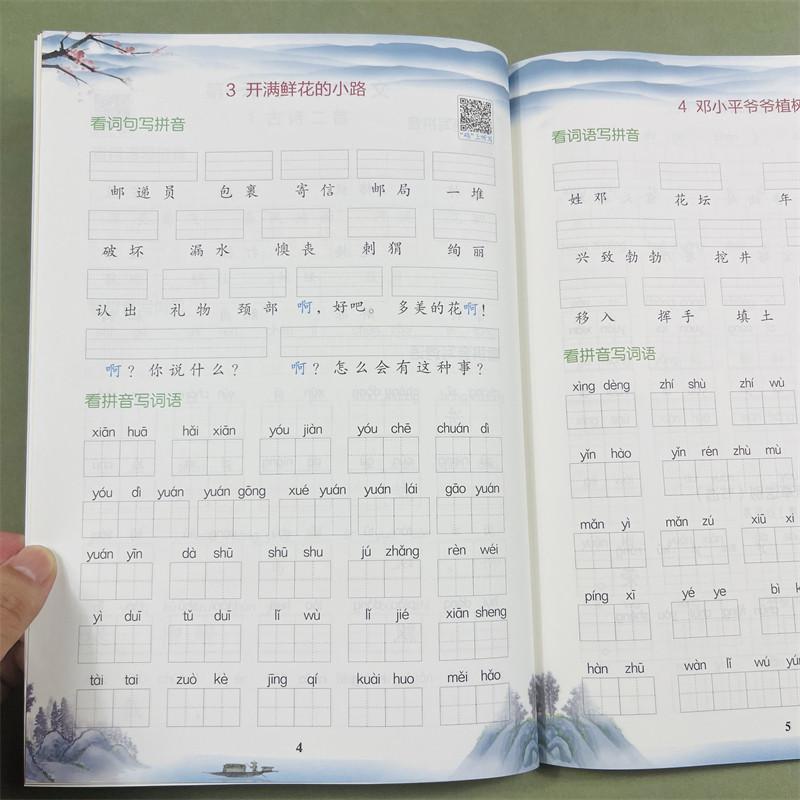 3 开满鲜花的小路
看词句写拼音
邮递员 包裹 寄信 邮局 一堆
破坏 漏水 懊丧 刺猬 绚丽
认出 礼物 颈部 啊，好吧。 多美的花啊！
啊？你说什么？ 啊？怎么会有这种事？
看拼音写词语
xiān huā hǎi xiān yóu jiàn yóu chē chuán dì
yóu dì yuán yuán gōng xué yuán yuán lái gāo yuán
yuán yīn dà shū shū shu jú zhǎng rèn wéi
yì duī tǔ duī lǐ wù lǐ jié xiān sheng
tài tai zuò kè jīng qí kuài huo měi hǎo
4
4 邓小平爷爷植树
看词语写拼音
姓邓 花坛 年
兴致勃勃 挖井
移入 挥手 填土
看拼音写词语
xìng dèng zhí shù zhí wù
yǐn hào yǐn rén zhù mù
mǎn yì mǎn zú xiū xi
píng xī yé ye bì
hàn zhū wàn lǐ wú yún
5